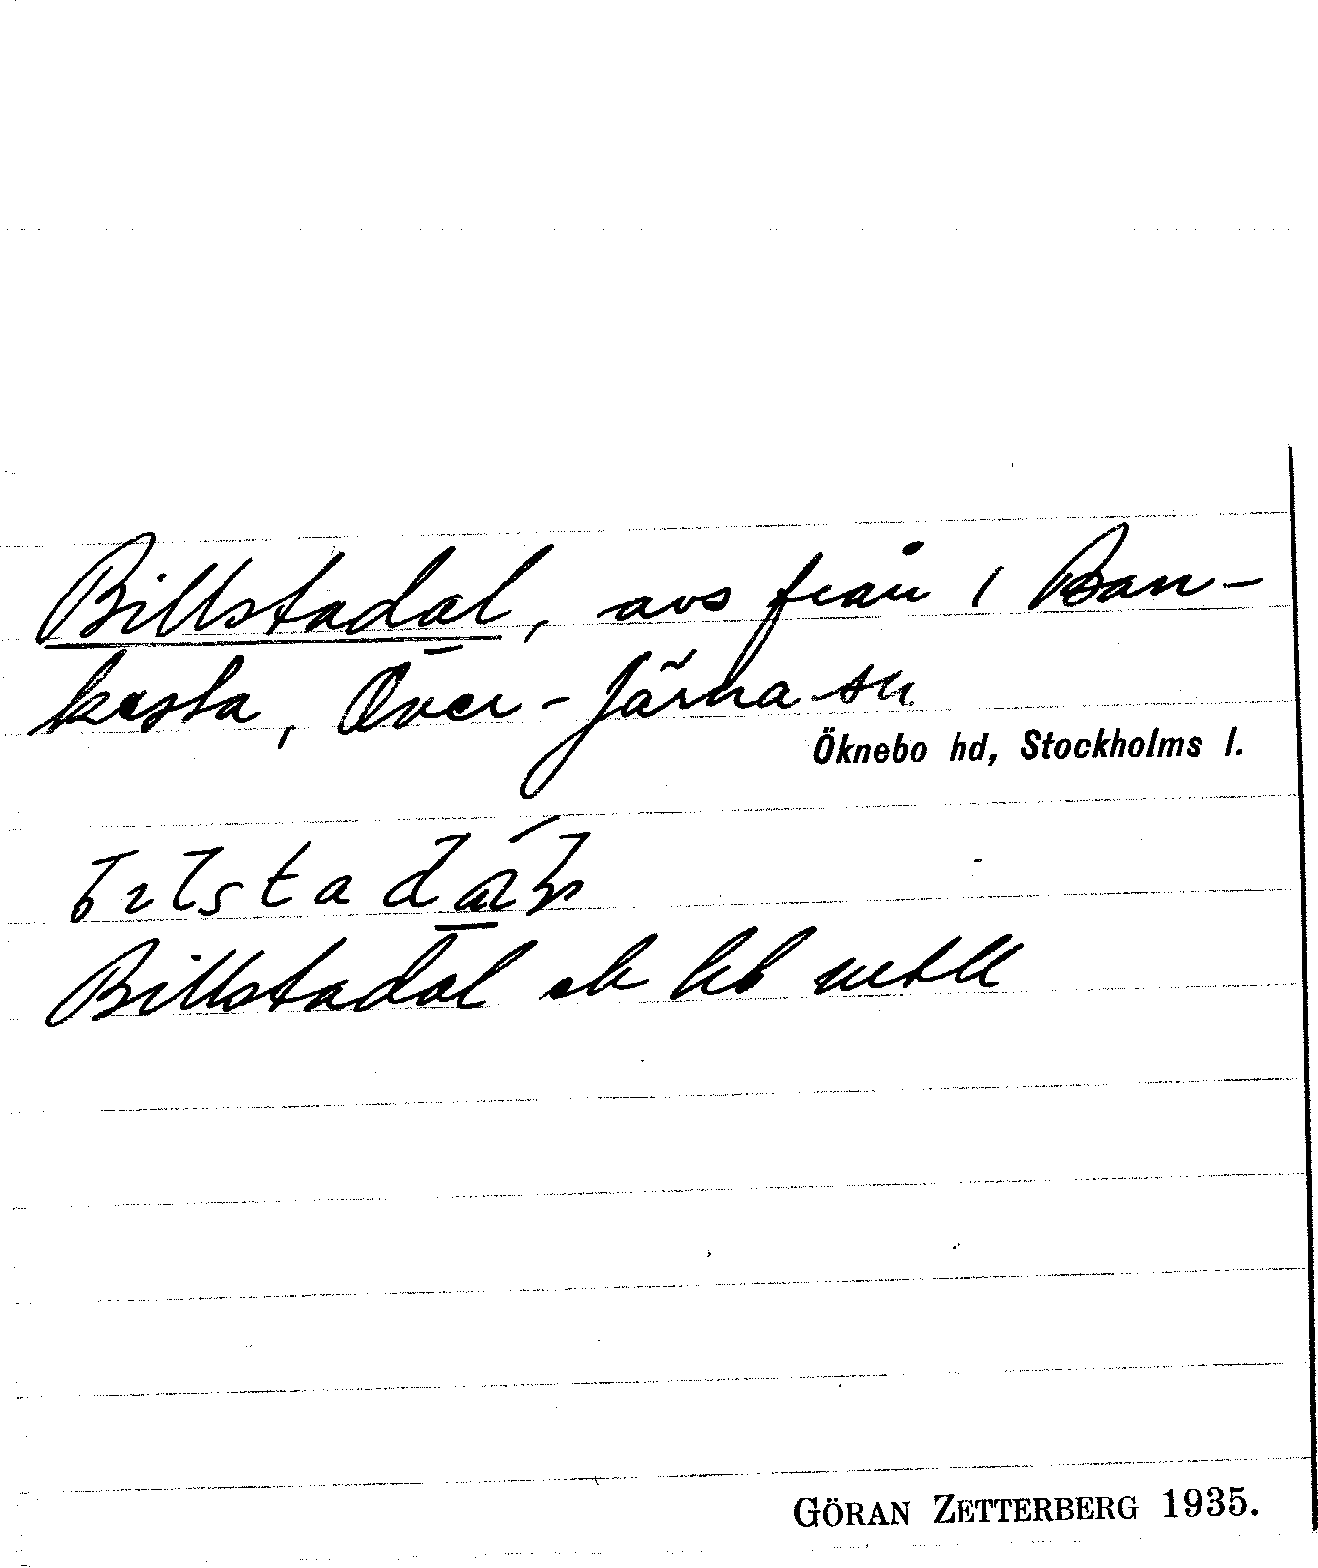 Billstadal, avs från 1 Ban-
kesta, Över-Järna sn
Öknebo hd, Stockholms l.
Billstadal eb hb
GÖRAN ZETTERBERG 1935.